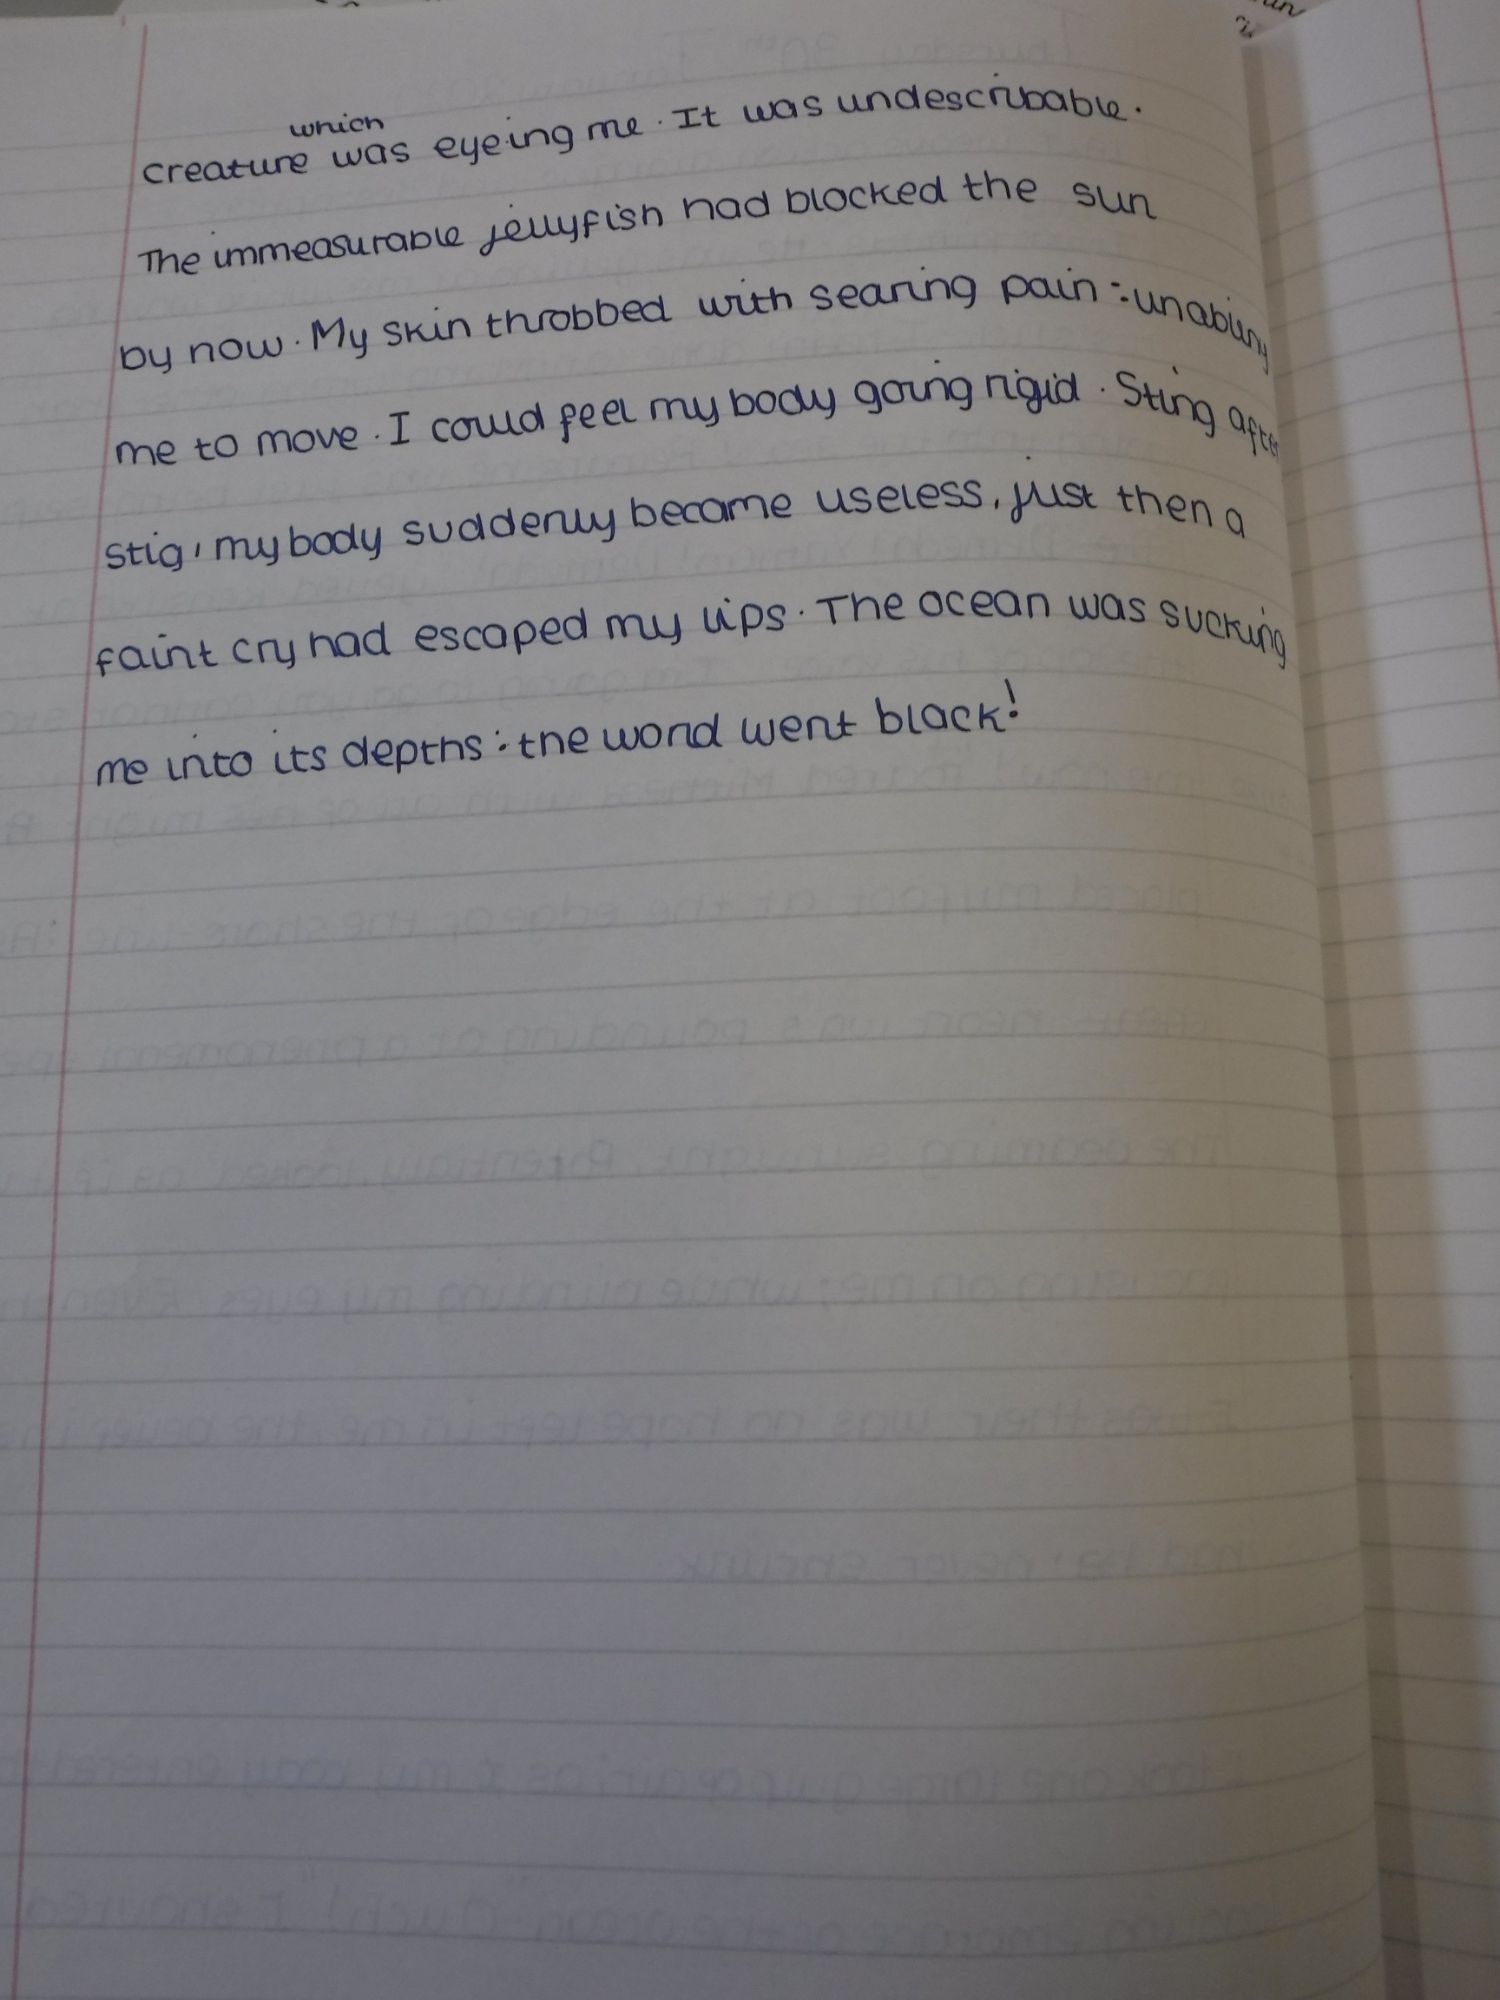 which
creature was eyeing me. It was undescribable.
The immeasurable jellyfish had blocked the sun
by now. My skin throbbed with searing pain:unabling
me to move. I could feel my body going rigid. Sting after
stig, my body suddenly became useless, just then a
faint cry had escaped my lips. The ocean was sucking
me into its depths: the world went black!